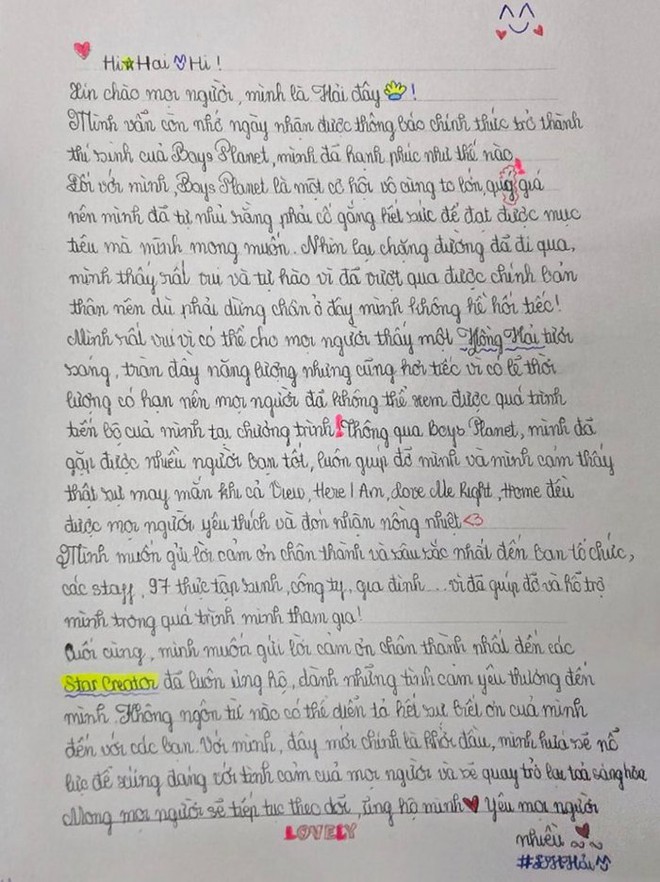 Hi Hai Hi !
Xin chào mọi người, mình là Hải đây !
Mình vẫn còn nhớ ngày nhận được thông báo chính thức trở thành
thí sinh của Boys Planet, mình đã hạnh phúc như thế nào.
Đối với mình, Boys Planet là một cơ hội vô cùng to lớn, quý giá
nên mình đã tự nhủ rằng phải cố gắng hết sức để đạt được mục
tiêu mà mình mong muốn. Nhìn lại chặng đường đã đi qua,
mình thấy rất vui và tự hào vì đã vượt qua được chính bản
thân nên dù phải dừng chân ở đây mình không hề hối tiếc!
Mình rất vui vì có thể cho mọi người thấy một Hồng Hải tươi
sáng, tràn đầy năng lượng nhưng cũng hơi tiếc vì có lẽ thời
lượng có hạn nên mọi người đã không thể xem được quá trình
tiến bộ của mình tại chương trình! Thông qua Boys Planet, mình đã
gặp được nhiều người bạn tốt, luôn giúp đỡ mình và mình cảm thấy
thật sự may mắn khi cả View, Here I Am, Love Me Right, Home đều
được mọi người yêu thích và đón nhận nồng nhiệt <3
Mình muốn gửi lời cảm ơn chân thành và sâu sắc nhất đến ban tổ chức,
các staff, 97 thực tập sinh, công ty, gia đình... vì đã giúp đỡ và hỗ trợ
mình trong quá trình mình tham gia!
Cuối cùng, mình muốn gửi lời cảm ơn chân thành nhất đến các
Star Creator đã luôn ủng hộ, dành những tình cảm yêu thương đến
mình. Không ngôn từ nào có thể diễn tả hết sự biết ơn của mình
đến với các bạn. Với mình, đây mới chính là khởi đầu, mình hứa sẽ nỗ
lực để xứng đáng với tình cảm của mọi người và sẽ quay trở lại toả sáng hơn
Mong mọi người sẽ tiếp tục theo dõi, ủng hộ mình Yêu mọi người
LOVELY
nhiều